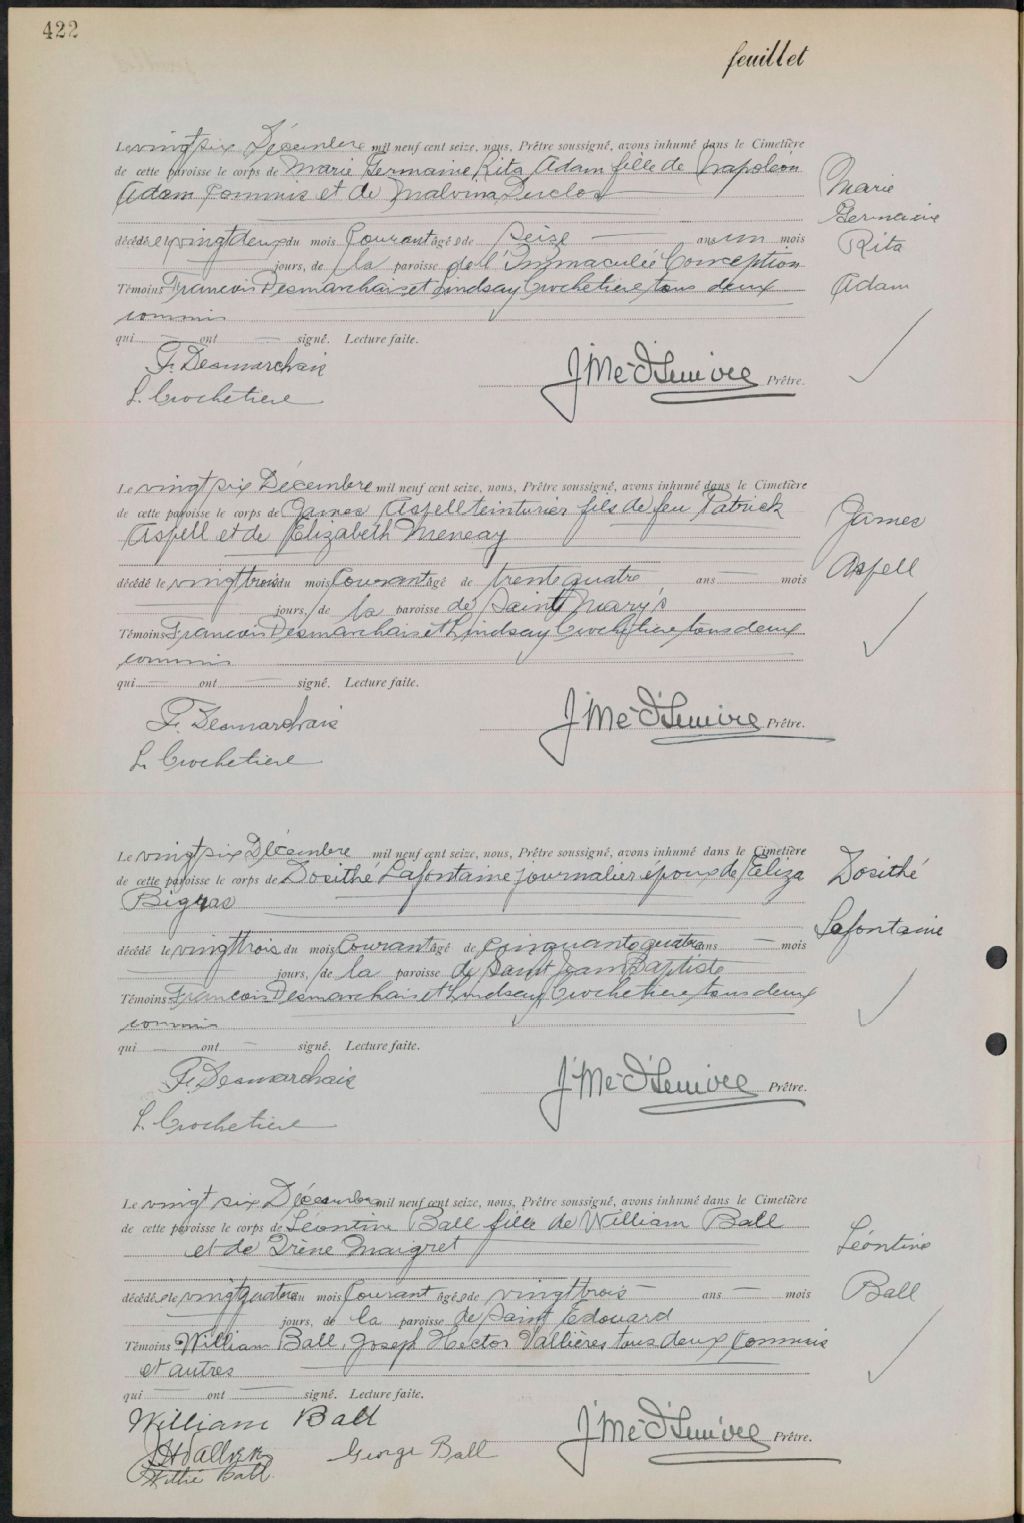 422
feuillet
Le vingt six Décembre mil neuf cent seize, nous, Prêtre soussigné, avons inhumé dans le Cimetière
de cette paroisse le corps de Marie Germaine Rita Adam fille de Napoléon
Adam commis et de Malvina Duclos
décédée le vingt deux du mois Courant âgée de seize ans un mois
jours, de la paroisse de l'Immaculée Conception
Témoins Francois Desmarchais et Lindsay Crochetiere tous deux
commis
qui ont signé. Lecture faite.
F. Desmarchais
L. Crochetiere
Prêtre.
Marie
Germaine
Rita
Adam
Le vingt six Décembre mil neuf cent seize, nous, Prêtre soussigné, avons inhumé dans le Cimetière
de cette paroisse le corps de James Aspell teinturier fils de feu Patrick
Aspell et de Elizabeth Meneay
décédé le vingt trois du mois Courant âgé de trente quatre ans mois
jours, de la paroisse de Saint Mary's
Témoins Francois Desmarchais et Lindsay Crochetiere tous deux
commis
qui ont signé. Lecture faite.
F. Desmarchais
L. Crochetiere
Prêtre.
James
Aspell
Le vingt six Décembre mil neuf cent seize, nous, Prêtre soussigné, avons inhumé dans le Cimetière
de cette paroisse le corps de Dosithé Lafontaine journalier époux de Eliza
Bigras
décédé le vingt trois du mois Courant âgé de cinquante quatre ans mois
jours, de la paroisse de Saint Jean Baptiste
Témoins Francois Desmarchais et Lindsay Crochetiere tous deux
commis
qui ont signé. Lecture faite.
F. Desmarchais
L. Crochetiere
Prêtre.
Dosithé
Lafontaine
Le vingt six Décembre mil neuf cent seize, nous, Prêtre soussigné, avons inhumé dans le Cimetière
de cette paroisse le corps de Léontine Ball fille de William Ball
et de Irène Maigret
décédée le vingt quatre du mois Courant âgée de vingt trois ans mois
jours, de la paroisse de Saint Edouard
Témoins William Ball, Joseph Hector Vallières tous deux commis
et autres
qui ont signé. Lecture faite.
William Ball
George Ball
Ball
Prêtre.
Léontine
Ball